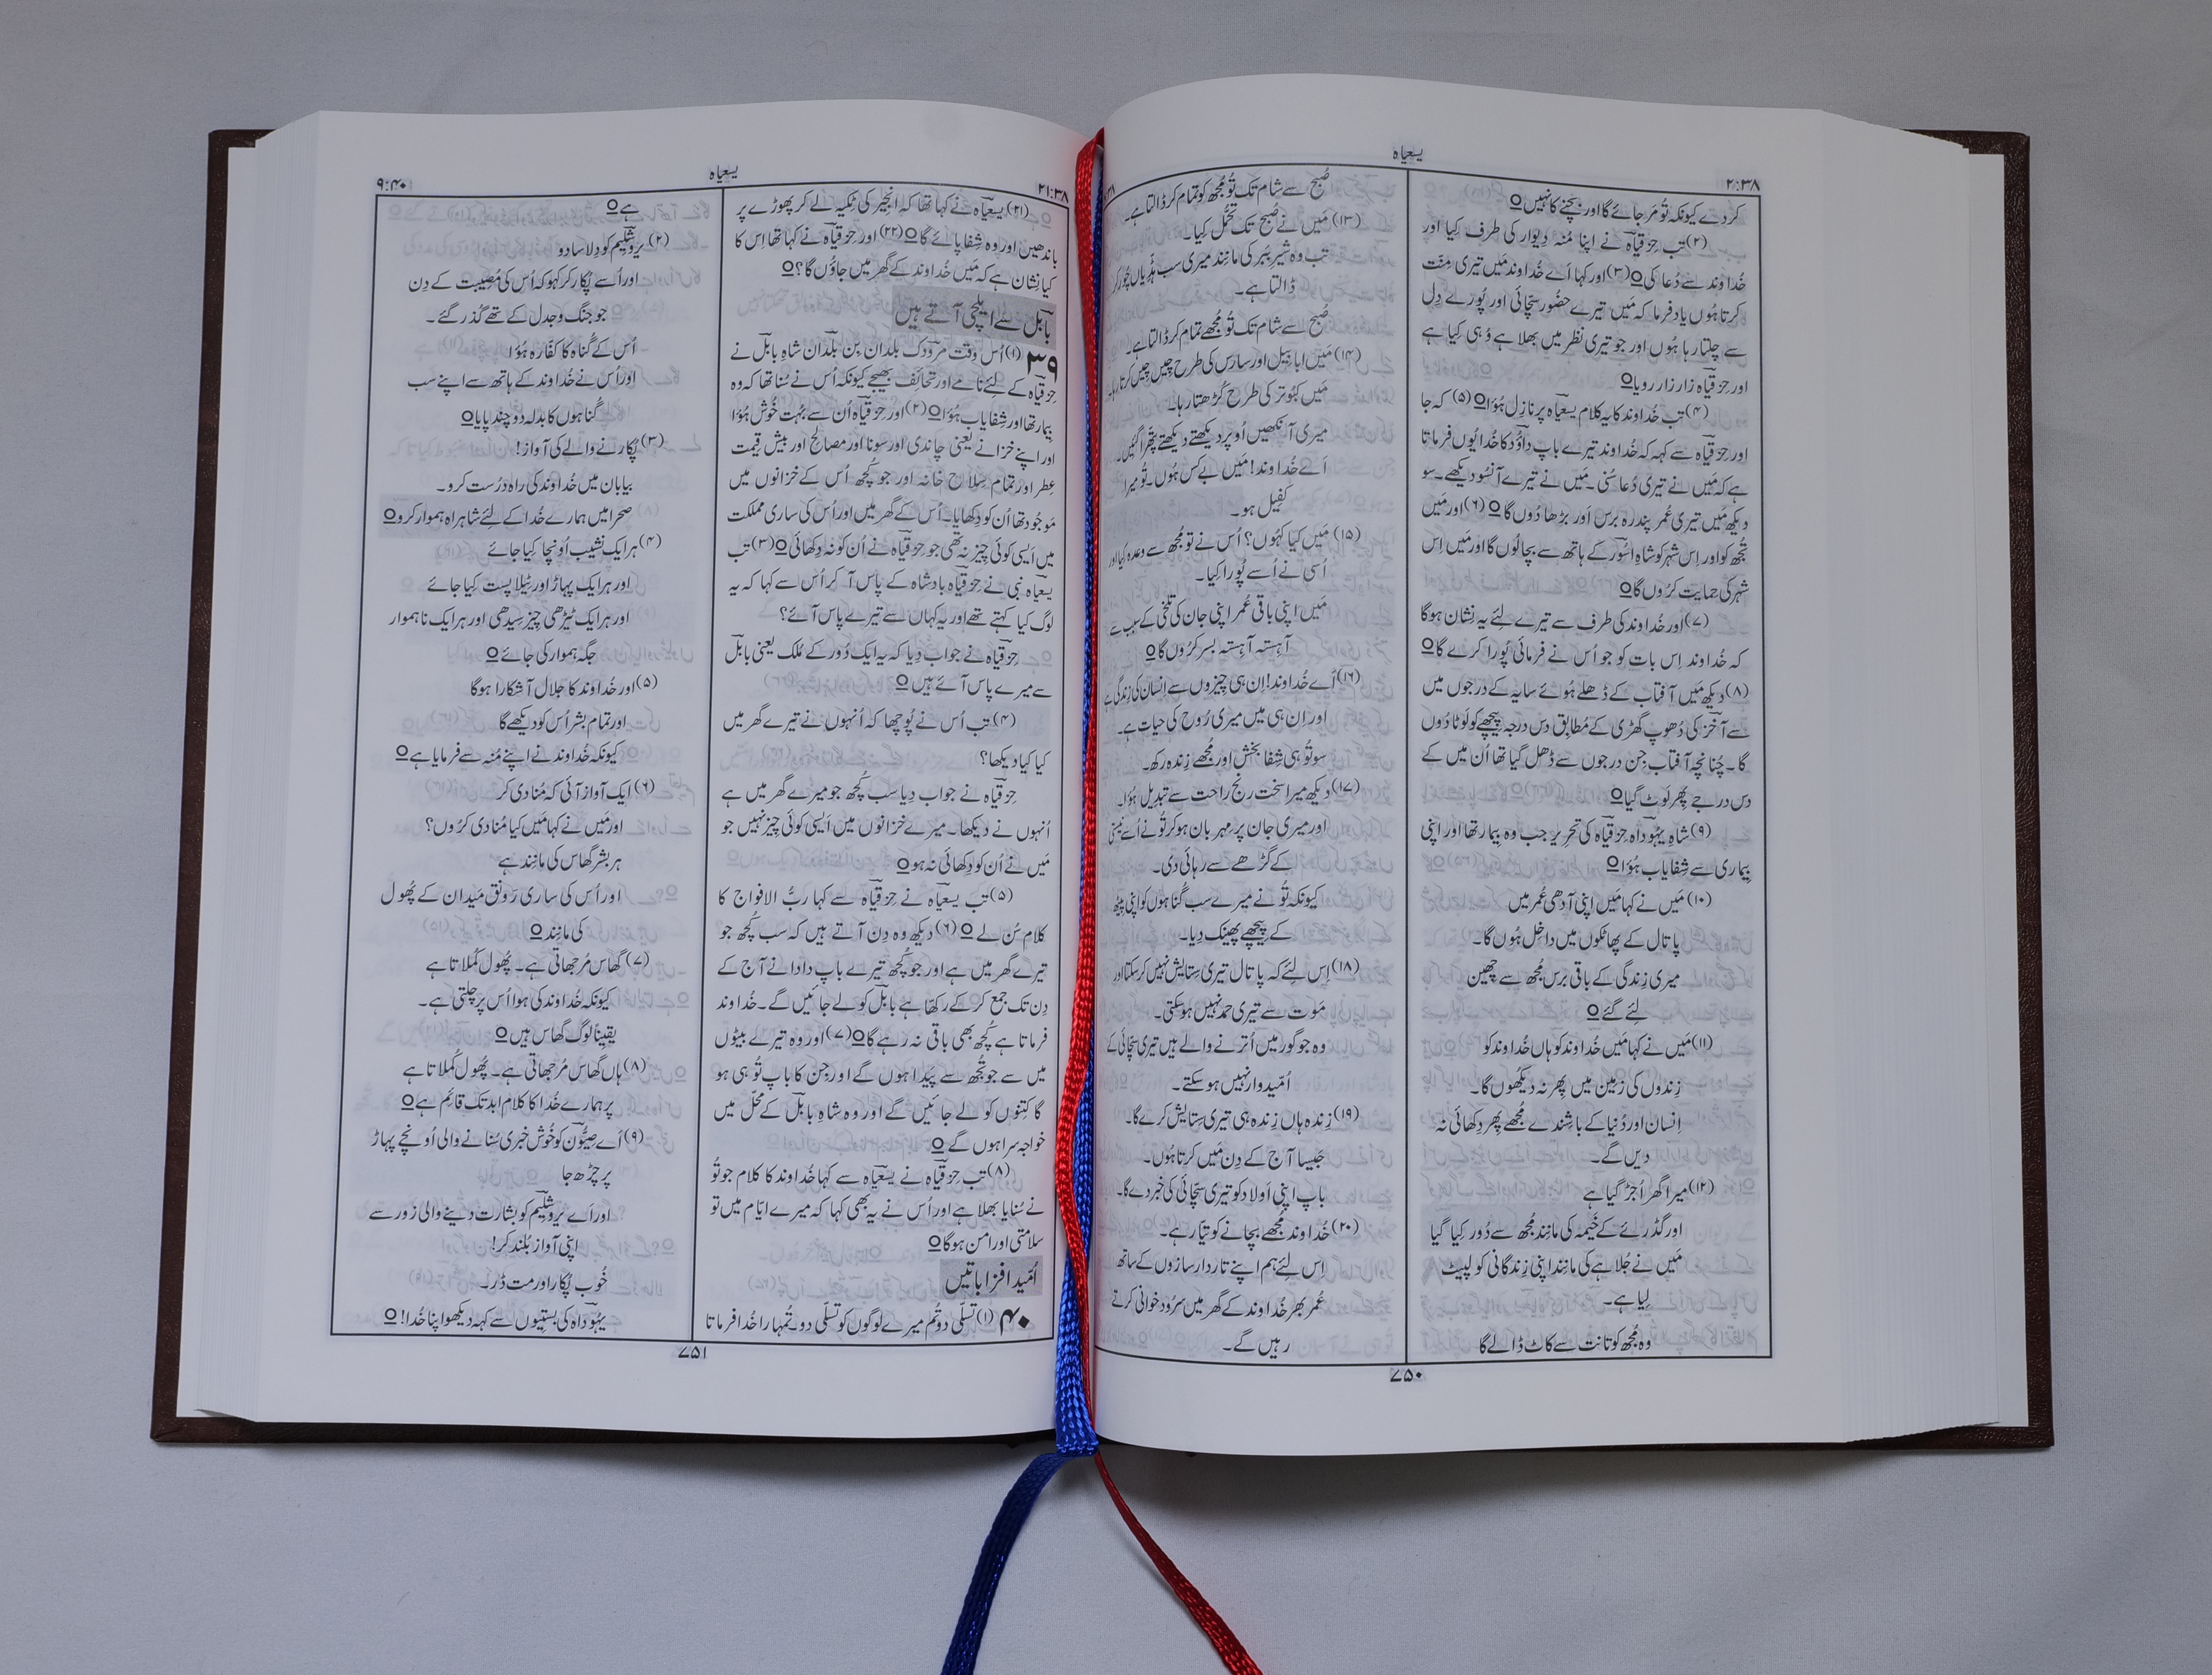 یسعیاہ
۲:۳۸
کر دے کیونکہ تُو مَر جائے گا اور بچنے کا نہیں○
(۲) تب حِزقیاہ نے اپنا مُنہ دِیوار کی طرف کِیا اور
خُداوند سے دُعا کی○(۳) اور کہا اَے خُداوند مَیں تیری مِنّت
کرتا ہُوں یاد فرما کہ مَیں تیرے حضُور سچّائی اور پُورے دِل
سے چلتا رہا ہُوں اور جو تیری نظر میں بھلا ہے وُہی کِیا ہے
اور حِزقیاہ زار زار رویا○
(۴) تب خُداوند کا یہ کلام یسعیاہ پر نازِل ہُؤا○(۵) کہ جا
اور حِزقیاہ سے کہہ کہ خُداوند تیرے باپ داؤُد کا خُدا یُوں فرماتا
ہے کہ مَیں نے تیری دُعا سُنی۔ مَیں نے تیرے آنسُو دیکھے۔ سو
دیکھ مَیں تیری عُمر پندرہ برس اَور بڑھا دُوں گا○(۶) اور مَیں
تُجھ کو اور اِس شہر کو شاہِ اسُور کے ہاتھ سے بچا لُوں گا اور مَیں اِس
شہر کی حمایت کرُوں گا○
(۷) اور خُداوند کی طرف سے تیرے لِئے یہ نِشان ہو گا
کہ خُداوند اِس بات کو جو اُس نے فرمائی پُورا کرے گا○
(۸) دیکھ مَیں آفتاب کے ڈھلے ہُوئے سایہ کے درجوں میں
سے آخز کی دُھوپ گھڑی کے مُطابِق دس درجہ پِیچھے کو لَوٹا دُوں
گا۔ چُنانچہ آفتاب جِن درجوں سے ڈھل گیا تھا اُن میں کے
دس درجے پِھر لَوٹ گیا○
(۹) شاہِ یہُوداہ حِزقیاہ کی تحرِیر جب وہ بِیمار تھا اور اپنی
بِیماری سے شِفایاب ہُؤا○
(۱۰) مَیں نے کہا مَیں اپنی آدھی عُمر میں
پاتال کے پھاٹکوں میں داخِل ہُوں گا۔
میری زِندگی کے باقی برس مُجھ سے چِھین
لِئے گئے○
(۱۱) مَیں نے کہا مَیں خُداوند کو ہاں خُداوند کو
زِندوں کی زمِین میں پِھر نہ دیکُھوں گا۔
اِنسان اور دُنیا کے باشِندے مُجھے پِھر دِکھائی نہ
دیں گے۔
(۱۲) میرا گھر اُجڑ گیا ہے
اور گڈرئے کے خَیمہ کی مانِند مُجھ سے دُور کِیا گیا
مَیں نے جُلاہے کی مانِند اپنی زِندگانی کو لپیٹ
لِیا ہے۔
وہ مُجھ کو تانت سے کاٹ ڈالے گا
صُبح سے شام تک تُو مُجھ کو تمام کر ڈالتا ہے۔
(۱۳) مَیں نے صُبح تک تحمُّل کِیا۔
تب وہ شیرِ بَبر کی مانِند میری سب ہڈِّیاں چُور کر
ڈالتا ہے۔
صُبح سے شام تک تُو مُجھے تمام کر ڈالتا ہے۔
(۱۴) مَیں ابابِیل اور سارس کی طرح چِیں چِیں کرتا رہا۔
مَیں کبُوتر کی طرح کُڑھتا رہا۔
میری آنکھیں اُوپر دیکھتے دیکھتے پتّھرا گئِیں۔
اَے خُداوند! مَیں بے کس ہُوں۔ تُو میرا
کفِیل ہو۔
(۱۵) مَیں کیا کہُوں؟ اُس نے تو مُجھ سے وعدہ کِیا اور
اُسی نے اُسے پُورا کِیا۔
مَیں اپنی باقی عُمر اپنی جان کی تلخی کے سبب سے
آہِستہ آہِستہ بسر کرُوں گا○
(۱۶) اَے خُداوند! اِن ہی چِیزوں سے اِنسان کی زِندگی ہے
اور اِن ہی میں میری رُوح کی حیات ہے۔
سو تُو ہی شِفا بخش اور مُجھے زِندہ رکھ۔
(۱۷) دیکھ میرا سخت رنج راحت سے تبدِیل ہُؤا۔
اور میری جان پر مِہربان ہو کر تُو نے اُسے نیستی
کے گڑھے سے رہائی دی۔
کیونکہ تُو نے میرے سب گُناہوں کو اپنی پِیٹھ
کے پِیچھے پھینک دِیا۔
(۱۸) اِس لِئے کہ پاتال تیری سِتایش نہیں کر سکتا اور
مَوت سے تیری حمد نہیں ہو سکتی۔
وہ جو گور میں اُترنے والے ہیں تیری سچّائی کے
اُمّیدوار نہیں ہو سکتے۔
(۱۹) زِندہ ہاں زِندہ ہی تیری سِتایش کرے گا۔
جَیسا آج کے دِن مَیں کرتا ہُوں۔
باپ اپنی اَولاد کو تیری سچّائی کی خبر دے گا۔
(۲۰) خُداوند مُجھے بچانے کو تیّار ہے۔
اِس لِئے ہم اپنے تاردار سازوں کے ساتھ
عُمر بھر خُداوند کے گھر میں سرُود خوانی کرتے
رہیں گے۔
۷۵۰
۲۱:۳۸
یسعیاہ
۹:۴۰
(۲۱) یسعیاہ نے کہا تھا کہ انجِیر کی ٹِکیہ لے کر پھوڑے پر
باندھیں اور وہ شِفا پائے گا○(۲۲) اور حِزقیاہ نے کہا تھا اِس کا
کیا نِشان ہے کہ مَیں خُداوند کے گھر میں جاؤُں گا؟○
بابل سے ایلچی آتے ہیں
۳۹ (۱) اُس وقت مرُودک بلَدان بِن بلَدان شاہِ بابل نے
حِزقیاہ کے لِئے نامے اور تحائف بھیجے کیونکہ اُس نے سُنا تھا کہ وہ
بِیمار تھا اور شِفایاب ہُؤا○(۲) اور حِزقیاہ اُن سے بُہت خُوش ہُؤا
اور اپنے خزانے یعنی چاندی اور سونا اور مصالح اور بیش قِیمت
عِطر اور تمام سِلاح خانہ اور جو کُچھ اُس کے خزانوں میں
مَوجُود تھا اُن کو دِکھایا۔ اُس کے گھر میں اور اُس کی ساری مملکت
میں اَیسی کوئی چِیز نہ تھی جو حِزقیاہ نے اُن کو نہ دِکھائی○(۳) تب
یسعیاہ نبی نے حِزقیاہ بادشاہ کے پاس آ کر اُس سے کہا کہ یہ
لوگ کیا کہتے تھے اور یہ کہاں سے تیرے پاس آئے؟
حِزقیاہ نے جواب دِیا کہ یہ ایک دُور کے مُلک یعنی بابل
سے میرے پاس آئے ہیں○
(۴) تب اُس نے پُوچھا کہ اُنہوں نے تیرے گھر میں
کیا کیا دیکھا؟
حِزقیاہ نے جواب دِیا سب کُچھ جو میرے گھر میں ہے
اُنہوں نے دیکھا۔ میرے خزانوں میں اَیسی کوئی چِیز نہیں جو
مَیں نے اُن کو دِکھائی نہ ہو○
(۵) تب یسعیاہ نے حِزقیاہ سے کہا ربُّ الافواج کا
کلام سُن لے○(۶) دیکھ وہ دِن آتے ہیں کہ سب کُچھ جو
تیرے گھر میں ہے اور جو کُچھ تیرے باپ دادا نے آج کے
دِن تک جمع کر کے رکھّا ہے بابل کو لے جائیں گے۔ خُداوند
فرماتا ہے کُچھ بھی باقی نہ رہے گا○(۷) اور وہ تیرے بیٹوں
میں سے جو تُجھ سے پَیدا ہوں گے اور جِن کا باپ تُو ہی ہو
گا کِتنوں کو لے جائیں گے اور وہ شاہِ بابل کے محلّ میں
خواجہ سرا ہوں گے○
(۸) تب حِزقیاہ نے یسعیاہ سے کہا خُداوند کا کلام جو تُو
نے سُنایا بھلا ہے اور اُس نے یہ بھی کہا کہ میرے ایّام میں تو
سلامتی اور امن ہو گا○
اُمّید افزا باتیں
۴۰ (۱) تسلّی دو تُم میرے لوگوں کو تسلّی دو۔ تُمہارا خُدا فرماتا
ہے○
(۲) یروشلِیم کو دِلاسا دو
اور اُسے پُکار کر کہو کہ اُس کی مُصِیبت کے دِن
جو جنگ و جدل کے تھے گُذر گئے۔
اُس کے گُناہ کا کفّارہ ہُؤا
اور اُس نے خُداوند کے ہاتھ سے اپنے سب
گُناہوں کا بدلہ دو چند پایا○
(۳) پُکارنے والے کی آواز!
بیابان میں خُداوند کی راہ درُست کرو۔
صحرا میں ہمارے خُدا کے لِئے شاہراہ ہموار کرو○
(۴) ہر ایک نشیب اُونچا کِیا جائے
اور ہر ایک پہاڑ اور ٹِیلا پست کِیا جائے
اور ہر ایک ٹیڑھی چِیز سِیدھی اور ہر ایک ناہموار
جگہ ہموار کی جائے○
(۵) اور خُداوند کا جلال آشکارا ہو گا
اور تمام بشر اُس کو دیکھے گا
کیونکہ خُداوند نے اپنے مُنہ سے فرمایا ہے○
(۶) ایک آواز آئی کہ مُنادی کر
اور مَیں نے کہا مَیں کیا مُنادی کرُوں؟
ہر بشر گھاس کی مانِند ہے
اور اُس کی ساری رَونق مَیدان کے پُھول
کی مانِند○
(۷) گھاس مُرجھاتی ہے۔ پُھول کُملاتا ہے
کیونکہ خُداوند کی ہوا اُس پر چلتی ہے۔
یقِیناً لوگ گھاس ہیں○
(۸) ہاں گھاس مُرجھاتی ہے۔ پُھول کُملاتا ہے
پر ہمارے خُدا کا کلام ابد تک قائِم ہے○
(۹) اَے صِیُّون کو خُوش خبری سُنانے والی اُونچے پہاڑ
پر چڑھ جا
اور اَے یروشلِیم کو بشارت دینے والی زور سے
اپنی آواز بُلند کر!
خُوب پُکار اور مت ڈر۔
یہُوداہ کی بستِیوں سے کہہ دیکھو اپنا خُدا!○
۷۵۱